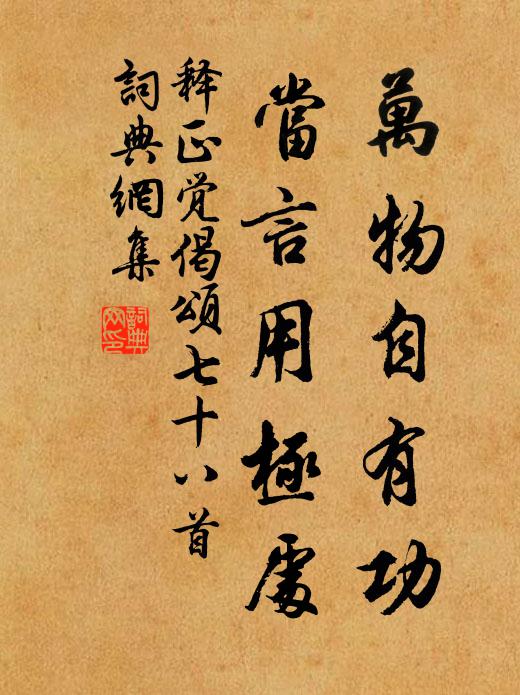 萬物自有功
當言用極處
释正覺偈頌七十八首
詞典網集
詞典
网印